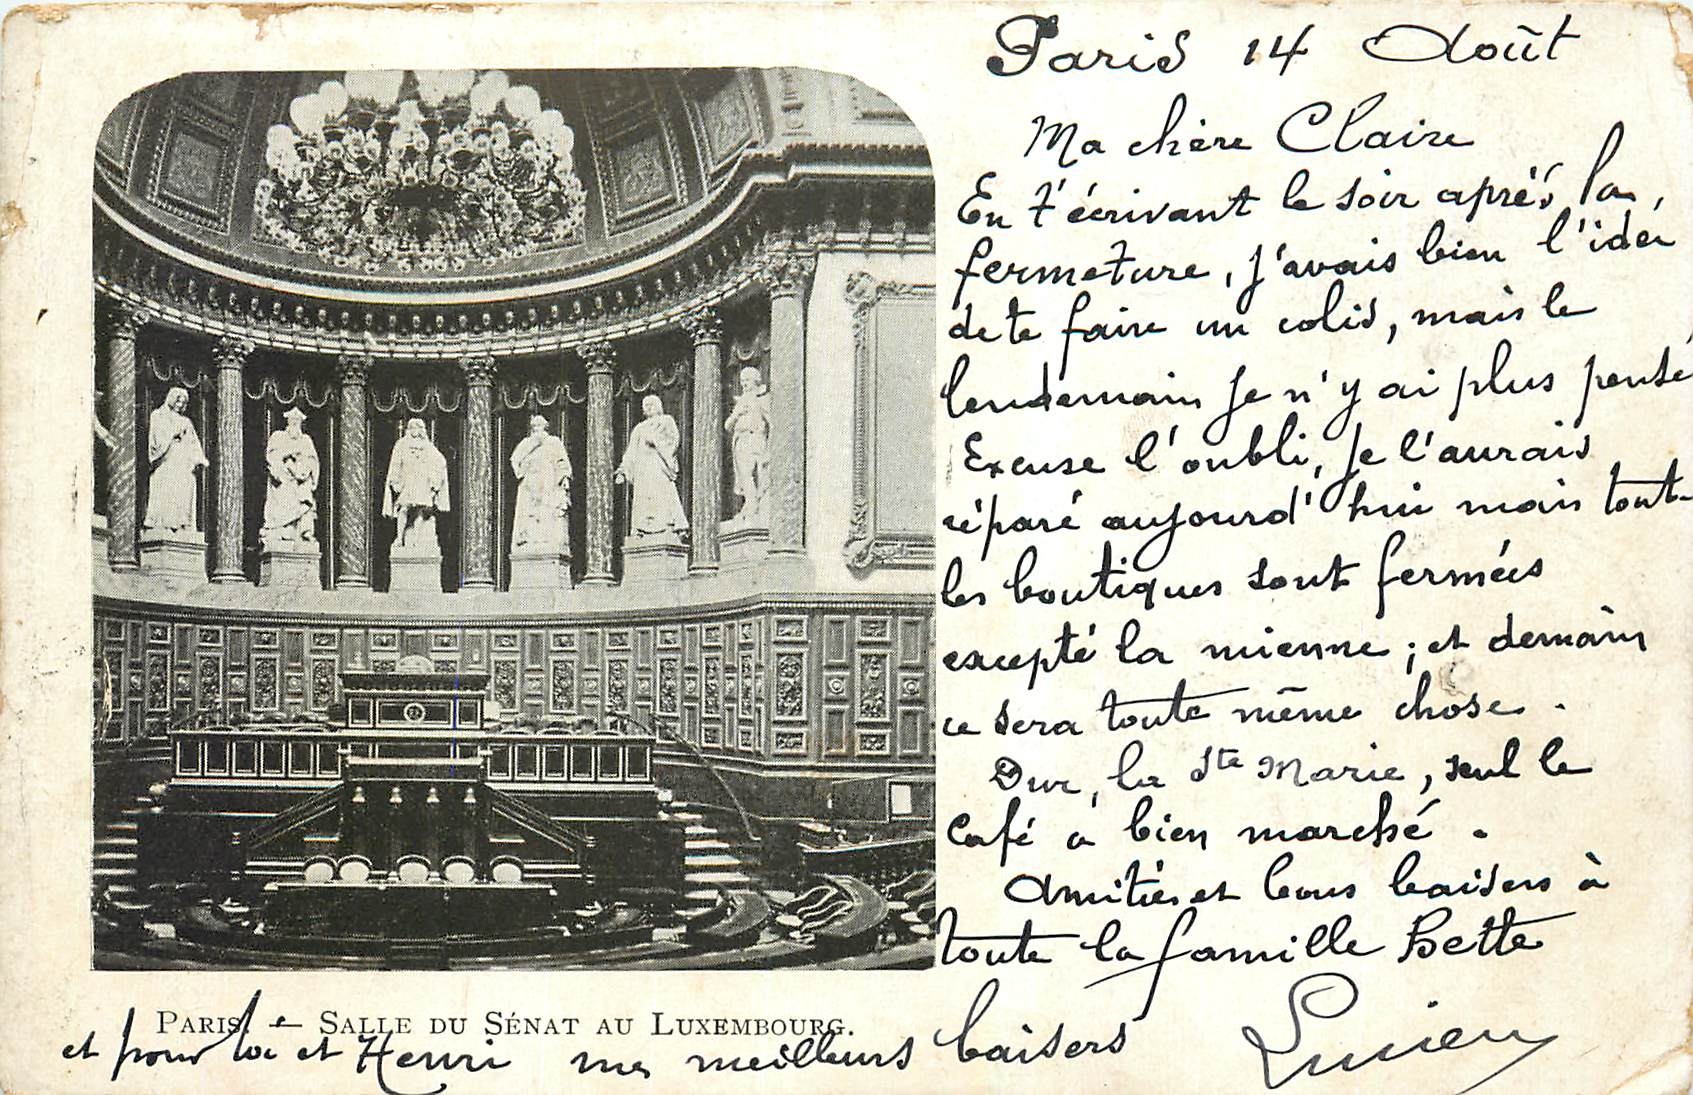 Paris 14 Août
Ma chère Claire
En t'écrivant le soir après la
fermeture, j'avais bien l'idée
de te faire un colis, mais le
lendemain je n'y ai plus pensé
Excuse l'oubli, je l'aurais
réparé aujourd'hui mais tout
les boutiques sont fermées
excepté la mienne ; et demain
ce sera toute même chose .
la Ste Marie, seul le
Café a bien marché .
Amitiés et bons baisers à
toute la famille Bette
PARIS. — SALLE DU SÉNAT AU LUXEMBOURG.
et pour toi et Henri mes meilleurs baisers
Lucien